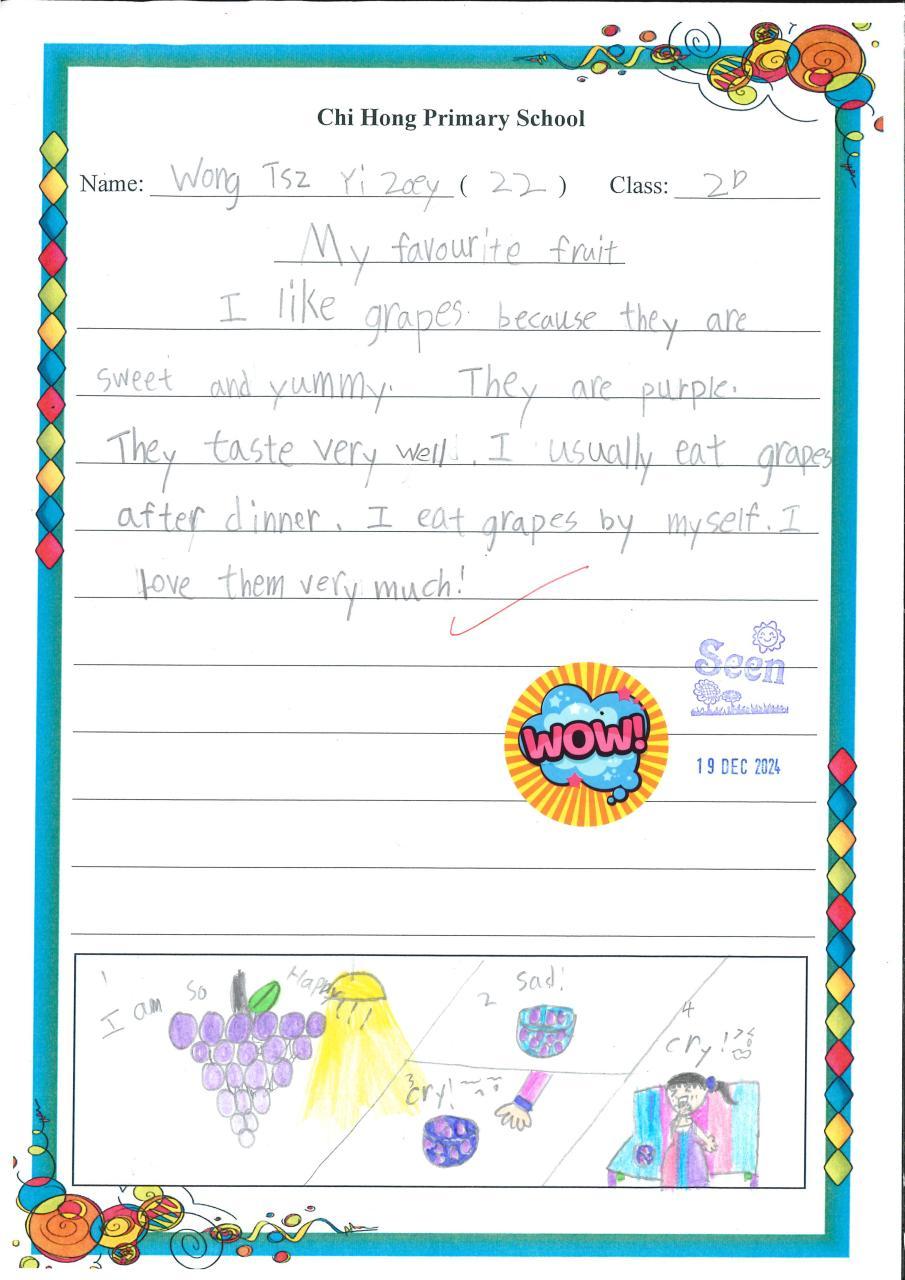 Chi Hong Primary School
Name: Wong Tsz Yi Zoey ( 22 ) Class: 2D
My favourite fruit
I like grapes because they are
sweet and yummy. They are purple.
They taste very well. I usually eat grapes
after dinner. I eat grapes by myself. I
love them very much!
Seen
WOW!
19 DEC 2024
1
I am so Happy
2 sad!
3 cry!
4
cry!